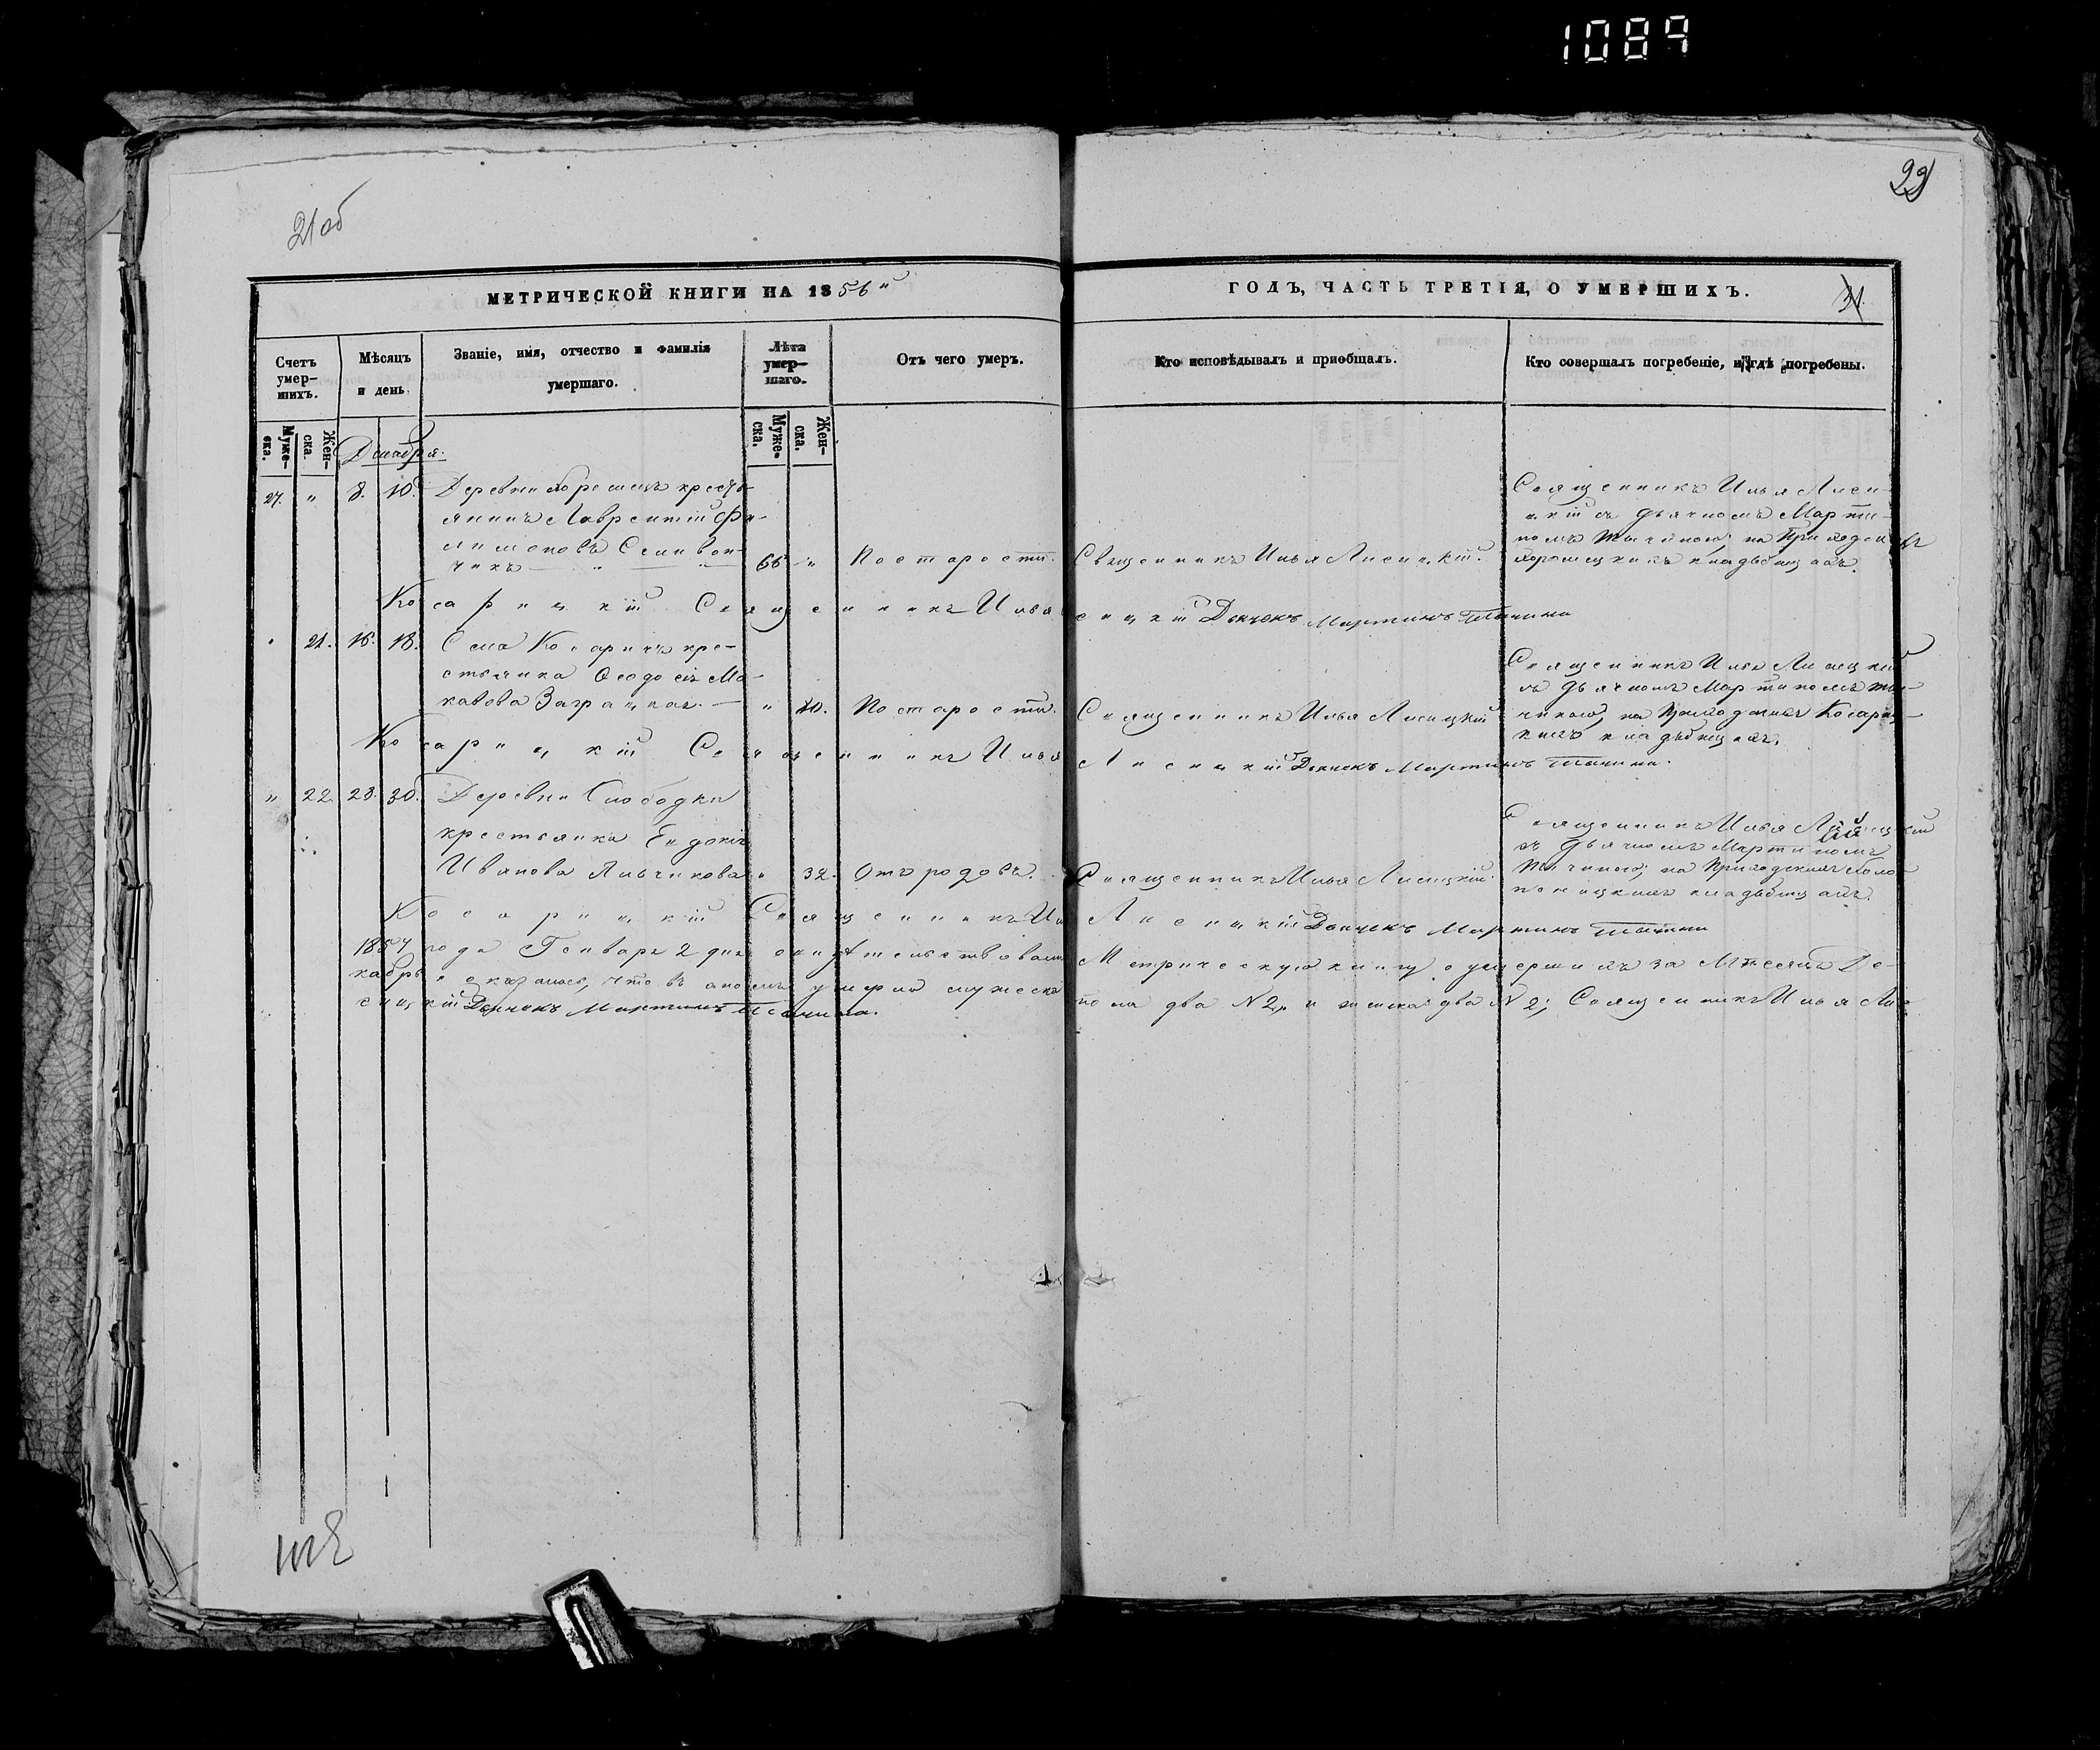 1089
22
21об
МЕТРИЧЕСКОЙ КНИГИ НА 1856й
ГОДЪ, ЧАСТЬ ТРЕТІЯ, О УМЕРШИХЪ.
31.
Счетъ умер-шихъ.
Мѣсяцъ и день.
Званіе, имя, отчество и фамилія умершаго.
Лѣта умер-шаго.
Отъ чего умеръ.
Кто исповѣдывалъ и пріобщалъ.
Кто совершалъ погребеніе, и гдѣ погребены.
Муже-ска.
Жен-ска.
Муже-ска.
Жен-ска.
Декабря.
27. " 8. 10. Деревни крестья-
янинъ Лаврентій Фи-
лимоновъ
66 " Постарости. Священникъ Илья Лисицкій.
Священникъ Илья Лиси-
цкій съ дьячкомъ Марти-
номъ на Приходскихъ
кладбищахъ.
Косарицкій Священникъ Илья Лисицкій Дьячокъ Мартинъ
" 21. 16. 18. Села Косаричъ кре-
стьянка Ѳеодосія Ма-
кавова Заграцкая.
" 70. Постарости. Священникъ Илья Лисицкій
Священникъ Илья Лисицкій
съ дьячкомъ Мартиномъ
на Приходскихъ Косари-
цкихъ кладбищахъ.
Косарицкій Священникъ Илья Лисицкій Дьячокъ Мартинъ
" 22. 28. 30. Деревни Слободки
крестьянка Евдокія
Иванова Яльчикова
" 32. Отъ родовъ. Священникъ Илья Лисицкій.
Священникъ Илья Лисицкій
съ дьячкомъ Мартиномъ
на Приходскихъ
кладбищахъ.
Косарицкій Священникъ Илья Лисицкій Дьячокъ Мартинъ
1857 года Генваря 2 дня свидѣтельствовали Метрическую книгу о умершихъ за Мѣсяцъ Де-
кабрь и оказалось, что въ ономъ умерло мужеска пола два N 2, и женска два N 2; Священникъ Илья Ли-
сицкій Дьячокъ Мартинъ